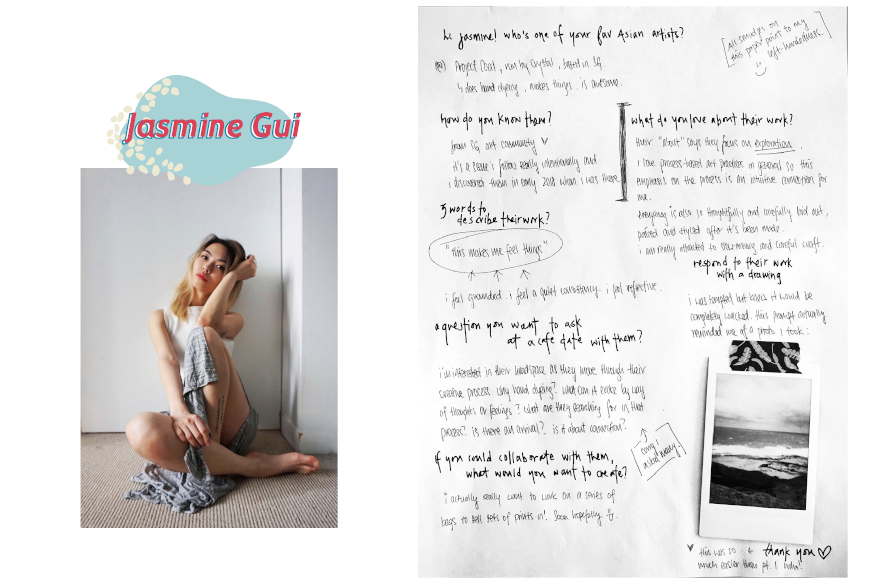 Jasmine Gui
hi Jasmine! who's one of your fav Asian artists?
[All smudges on
this paper point to my
left-handedness.]
Project Coat, run by Crystal, based in SG
↳ does hand dyeing, makes things, is awesome.
how do you know them?
from SG art community
it's a scene i follow really intentionally and
i discovered them in early 2018 when i was there
what do you love about their work?
their "about" says they focus on exploration.
i love process-based art practices in general so this
emphasis on the process is an intuitive connection for
me.
everything is also so thoughtfully and carefully laid out,
and styled after it's been made.
i am really attracted to slow-moving and careful craft.
5 words to
describe their work?
"this makes me feel things"
i feel grounded. i feel a quiet consistency. i feel reflective.
respond to their work
with a drawing
i was tempted but knew it would be
completely wrecked. this prompt actually
reminded me of a photo i took:
a question you want to ask
at a cafe date with them?
i'm interested in their headspace as they move through their
creative process. why hand dyeing? what can it evoke by way
of thoughts or feelings? what are they searching for in that
process? is there an arrival? is it about connection?
[sorry i
asked many]
if you could collaborate with them,
what would you want to create?
i actually really want to work on a series of
bags to sell sets of prints in! Soon hopefully
this was so
much easier than pt. 1 haha!
thank you